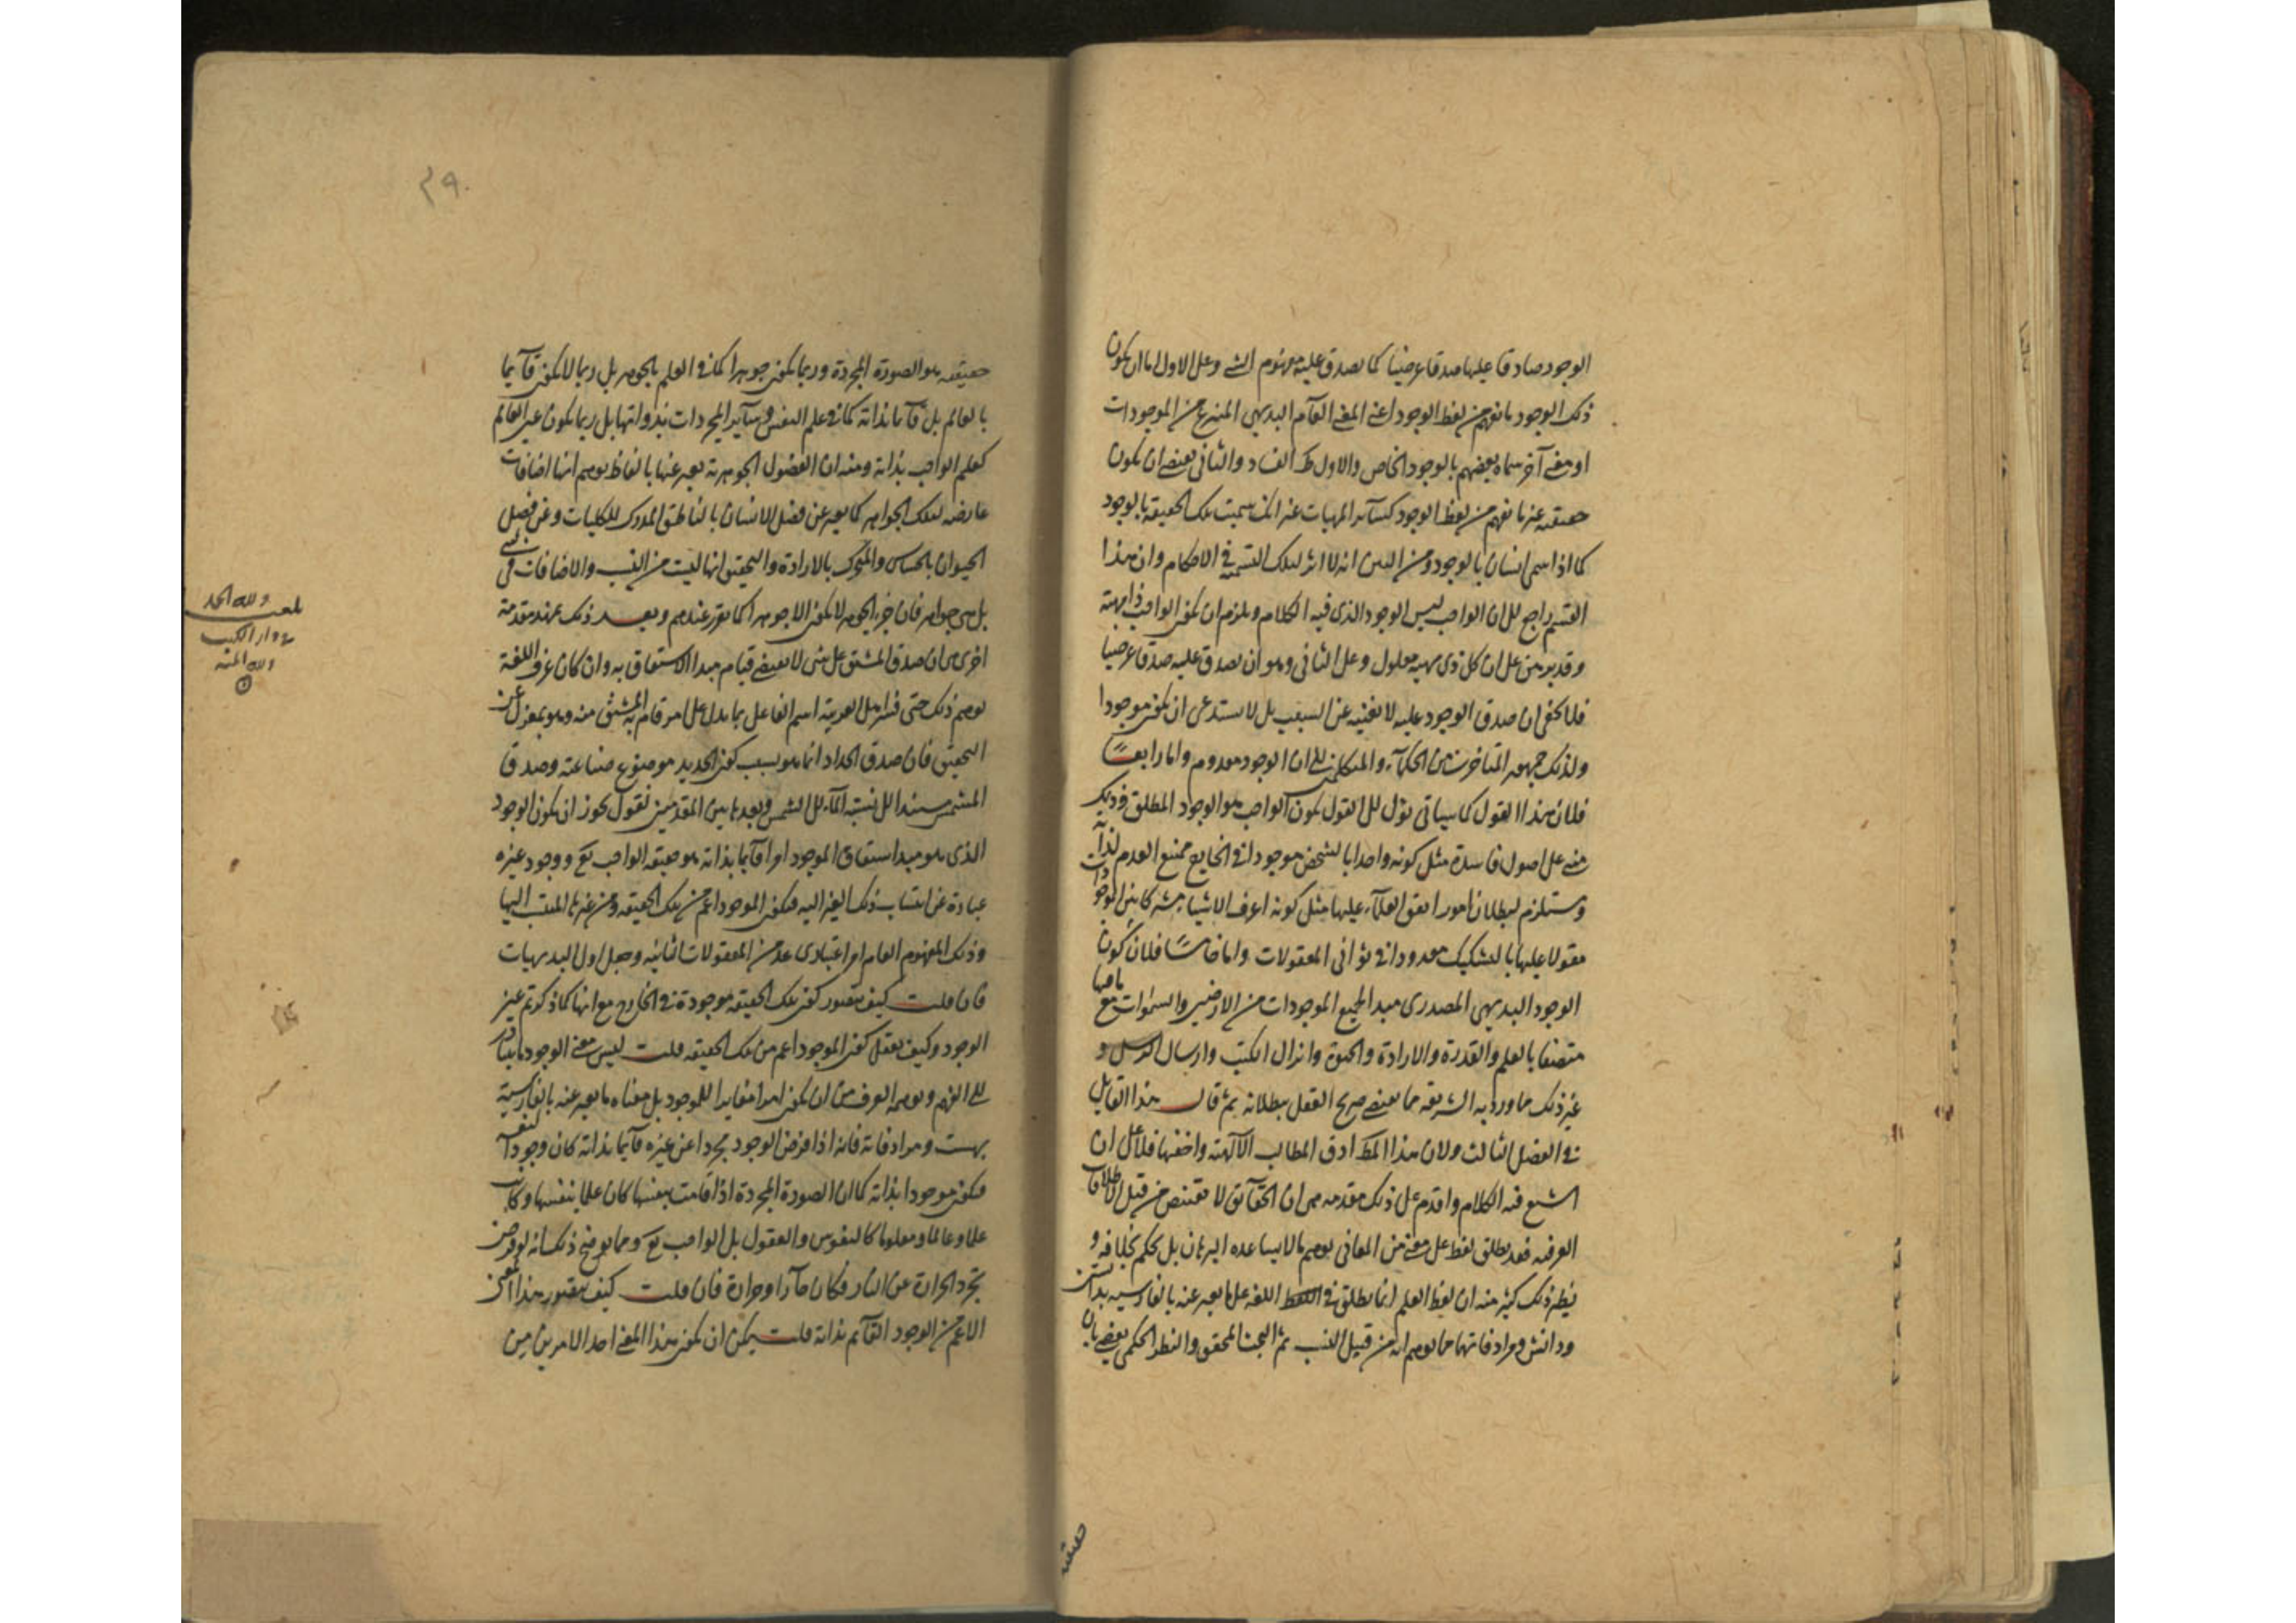 الوجود صادقا عليها صدقا عرضيا كما يصدق عليه مفهوم الشئ وعلى الاول اما ان يكون
ذلك الوجود ما نفهم من لفظ الوجود اعنى المعنى العآم البديهى المنتزع من الموجودات
او معنى آخر سماه بعضهم بالوجود الخاص والاول ظ الفساد والثانى يقتضى ان يكون
حقيقته غير ما نفهم من لفظ الوجود كسآئر المهيات غير انك سميت تلك الحقيقة بالوجود
كما اذا سمى انسان بالوجود ومن البين انه لا اثر لتلك التسمية فى الاحكام وان هذا
القسم راجع الى ان الواجب ليس الوجود الذى فيه الكلام ويلزم ان يكون الواجب ذا مهية
وقد برهن على ان كل ذى مهية معلول وعلى الثانى وهو ان يصدق عليه صدقا عرضيا
فلا يخفى ان صدق الوجود عليه لا يغنيه عن السبب بل لا يستدعى ان يكون موجودا
ولذلك جمهور المتاخرين من الحكمآء والمتكلمين الى ان الوجود معدوم واما رابعًا
فلان هذا القول كما سياتى يؤل الى القول بكون الواجب هو الوجود المطلق وذلك
مبنى على اصول فاسدة مثل كونه واحدا بالشخص موجودا فى الخارج ممتنع العدم لذاته
ومستلزم لبطلان امور اتفق العقلآء عليها مثل كونه اعرف الاشياء مشتركا بين الموجودات
مقولا عليها بالتشكيك معدودا فى ثوانى المعقولات واما خامسًا فلان كون
الوجود البديهى المصدرى مبدا لجميع الموجودات من الارضين والسموات مع ما فيها
متصفا بالعلم والقدرة والارادة والحيوة وانزال الكتب وارسال الرسل و
غير ذلك مما ورد به الشريعة مما يقتضى صريح العقل ببطلانه ثم قال هذا القايل
فى الفصل الثالث ولان هذا المط ادق المطالب الآلهية واخفها فلا على ان
اشبع فيه الكلام واقدم على ذلك مقدمه هى ان الحقآئق لا تقتنص من قبل الاطلاقات
العرفيه فقد يطلق لفظ على معنى من المعانى يوهم ما لا يساعده البرهان بل يحكم بخلافه و
نظير ذلك كثير منه ان لفظ العلم انما يطلق فى اللغة على ما يعبر عنه بالفارسيه بدانستن
ودانش ومرادفاتهما مما يوهم انه من قبيل النسب ثم البحث المحقق والنظر الحكمى يقضى بان
حقيقته
٢٩٠
حقيقته هو الصورة المجردة وربما يكون جوهرا كما فى العلم بالجوهر بل ربما لا يكون قآئما
بالعالم بل قآئما بذاته كما فى علم النفس وسآير المجردات بذواتها بل ربما يكون عين العالم
كعلم الواجب بذاته ومنه ان الفصول الجوهرية يعبر عنها بالفاظ يوهم انها اضافات
عارضه لتلك الجواهر كما يعبر عن فصل الانسان بالناطق المدرك للكليات وعن فصل
الحيوان بالحساس والمتحرك بالارادة والتحقيق انها ليست من النسب والاضافات فى شئ
بل هى جواهر فان جزء الجوهر لا يكون الا جوهرا كما تقرر عندهم وبعد ذلك نمهد مقدمة
اخرى هى ان صدق المشتق على شئ لا يقتضى قيام مبدا الاشتقاق به وان كان عرف اللغة
يوهم ذلك حتى فسر اهل العربية اسم الفاعل بما يدل على امر قام به المشتق منه وهو بمعزل عن
التحقيق فان صدق الحداد انما هو بسبب كون الحديد موضوع صناعته وصدق
المشمس مستندا الى نسبة المآء الى الشمس وبعد هاتين المقدمتين نقول يجوز ان يكون الوجود
الذى هو مبدا اشتقاق الموجود امرا قآيما بذاته هو حقيقة الواجب تع ووجود غيره
عبارة عن انتساب ذلك الغير اليه فيكون الموجود اعم من تلك الحقيقه ومن غيرها المنتسب اليها
وذلك المفهوم العام امر اعتبارى عد من المعقولات الثانية وجعل اول البديهيات
فان قلت كيف يتصور كون تلك الحقيقه موجودة فى الخارج مع انها كما ذكرتم عين
الوجود وكيف يعقل كون الموجود اعم من تلك الحقيقه قلت ليس معنى الوجود ما يتبادر
الى الفهم ويوهمه العرف من ان يكون امرا مغايرا للوجود بل معناه ما يعبر عنه بالفارسية
بهست ومرادفاته فانه اذا فرض الوجود مجردا عن غيره قآيما بذاته كان وجودا لنفسه
فيكون موجودا بذاته كما ان الصورة المجردة اذا قامت بنفسها كان علما بنفسها وكانت
علما وعالما ومعلوما كالنفوس والعقول بل الواجب تع ومما يوضح ذلك انه لو فرض
تجرد الحرارة عن النار فكان حآرا وحرارة فان قلت كيف يتصور هذا المعنى
الاعم من الوجود القآئم بذاته قلت يمكن ان يكون هذا المعنى احد الامرين من
ولله الحمد